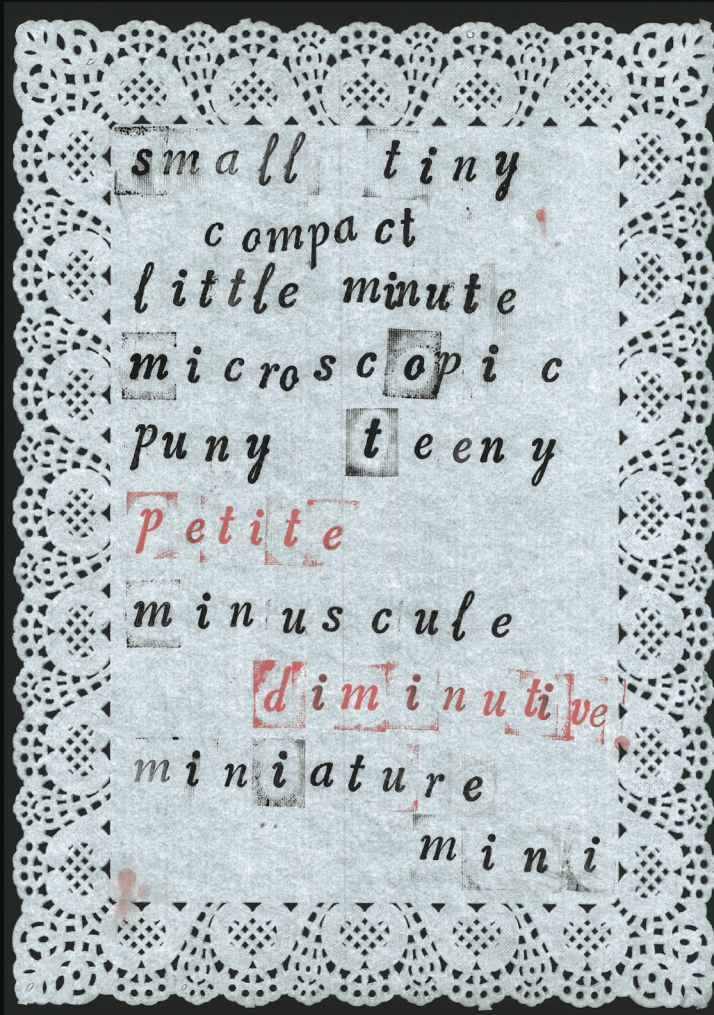 small tiny
compact
little minute
microscopic
puny teeny
petite
minuscule
diminutive
miniature
mini